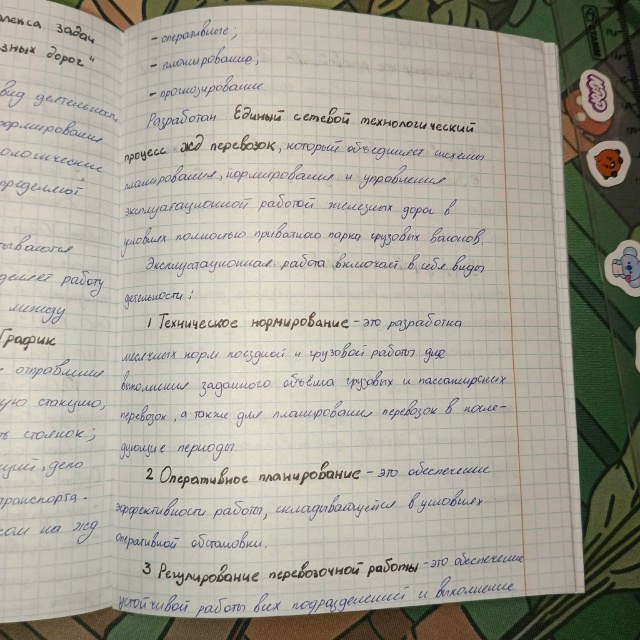 лекса задач
зных дорог"
вид деятельност
формирование
ологические
пределяют
зываются
деляет работу
между
График
е отправление
ую стоянию,
ть стоянок;
ущий, дело
транспорта-
сом на жд
- оперативные;
- планирование;
- прогнозирование
Разработан Единый сетевой технологический
процесс жд перевозок, который объединяет системы
планирования, нормирования и управления
эксплуатационной работой железных дорог в
условиях полностью приватного парка грузовых вагонов.
Эксплуатационная работа включает в себя виды
деятельности:
1 Техническое нормирование - это разработка
месячных норм поездной и грузовой работы для
выполнения заданного объёма грузовых и пассажирских
перевозок, а также для планирования перевозок в после-
дующие периоды.
2 Оперативное планирование - это обеспечение
эффективности работы, складывающейся в условиях
оперативной обстановки.
3 Регулирование перевозочной работы - это обеспечение
устойчивой работы всех подразделений и выполнение